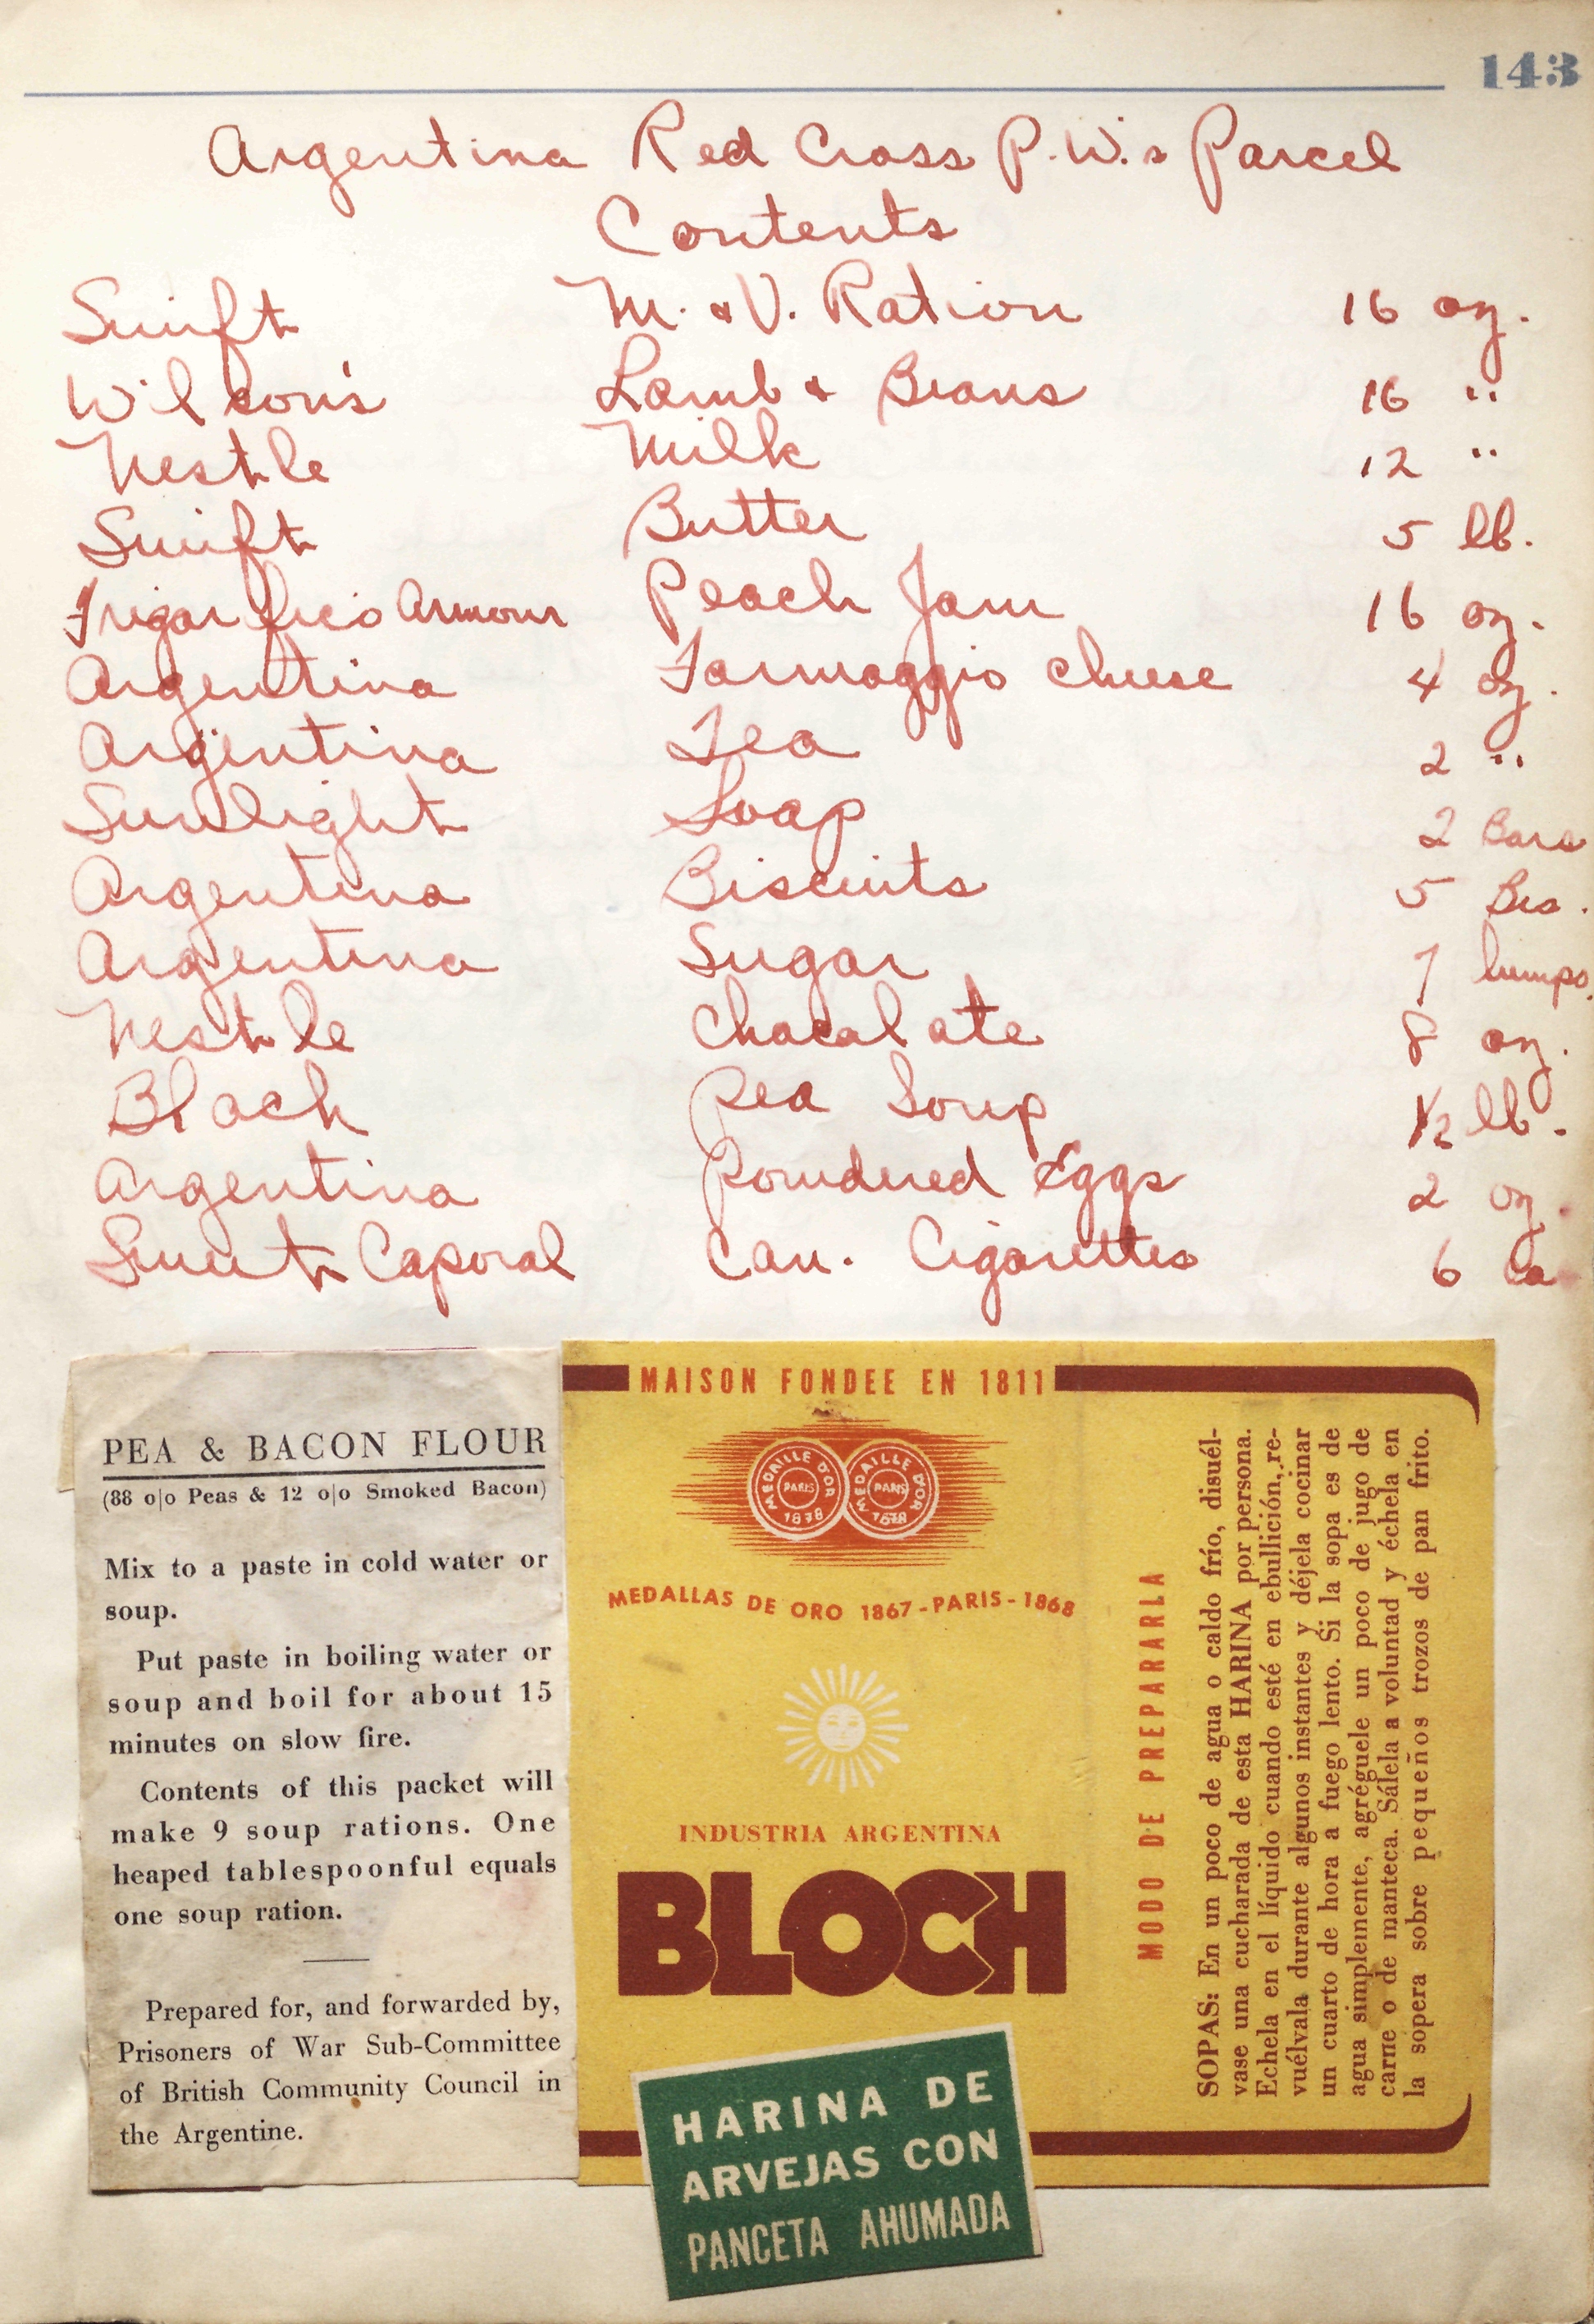 143
Argentina Red Cross P.W.s Parcel
Contents
Swift M. & V. Ration 16 oz.
Wilson's Lamb & Beans 16 "
Nestle Milk 12 "
Swift Butter 5 lb.
Frigorifico Armour Peach Jam 16 oz.
Argentina Formaggio cheese 4 oz.
Argentina Tea 2 "
Sunlight Soap 2 Bars
Argentina Biscuits 5 Bis.
Argentina Sugar 7 lumps.
Nestle Chocolate 8 oz.
Bloch Pea Soup 1/2 lb.
Argentina Powdered Eggs 2 oz.
Sweet Caporal Can. Cigarettes 6 ea
PEA & BACON FLOUR
(88 o|o Peas & 12 o|o Smoked Bacon)
Mix to a paste in cold water or
soup.
Put paste in boiling water or
soup and boil for about 15
minutes on slow fire.
Contents of this packet will
make 9 soup rations. One
heaped tablespoonful equals
one soup ration.
Prepared for, and forwarded by,
Prisoners of War Sub-Committee
of British Community Council in
the Argentine.
MAISON FONDEE EN 1811
MEDAILLE D'OR PARIS 1878
MEDAILLE D'OR PARIS 1878
MEDALLAS DE ORO 1867-PARIS-1868
INDUSTRIA ARGENTINA
BLOCH
HARINA DE
ARVEJAS CON
PANCETA AHUMADA
MODO DE PREPARARLA
SOPAS: En un poco de agua o caldo frío, disuél-
vase una cucharada de esta HARINA por persona.
Echela en el líquido cuando esté en ebullición, re-
vuélvala durante algunos instantes y déjela cocinar
un cuarto de hora a fuego lento. Si la sopa es de
agua simplemente, agréguele un poco de jugo de
carne o de manteca. Sálela a voluntad y échela en
la sopera sobre pequeños trozos de pan frito.